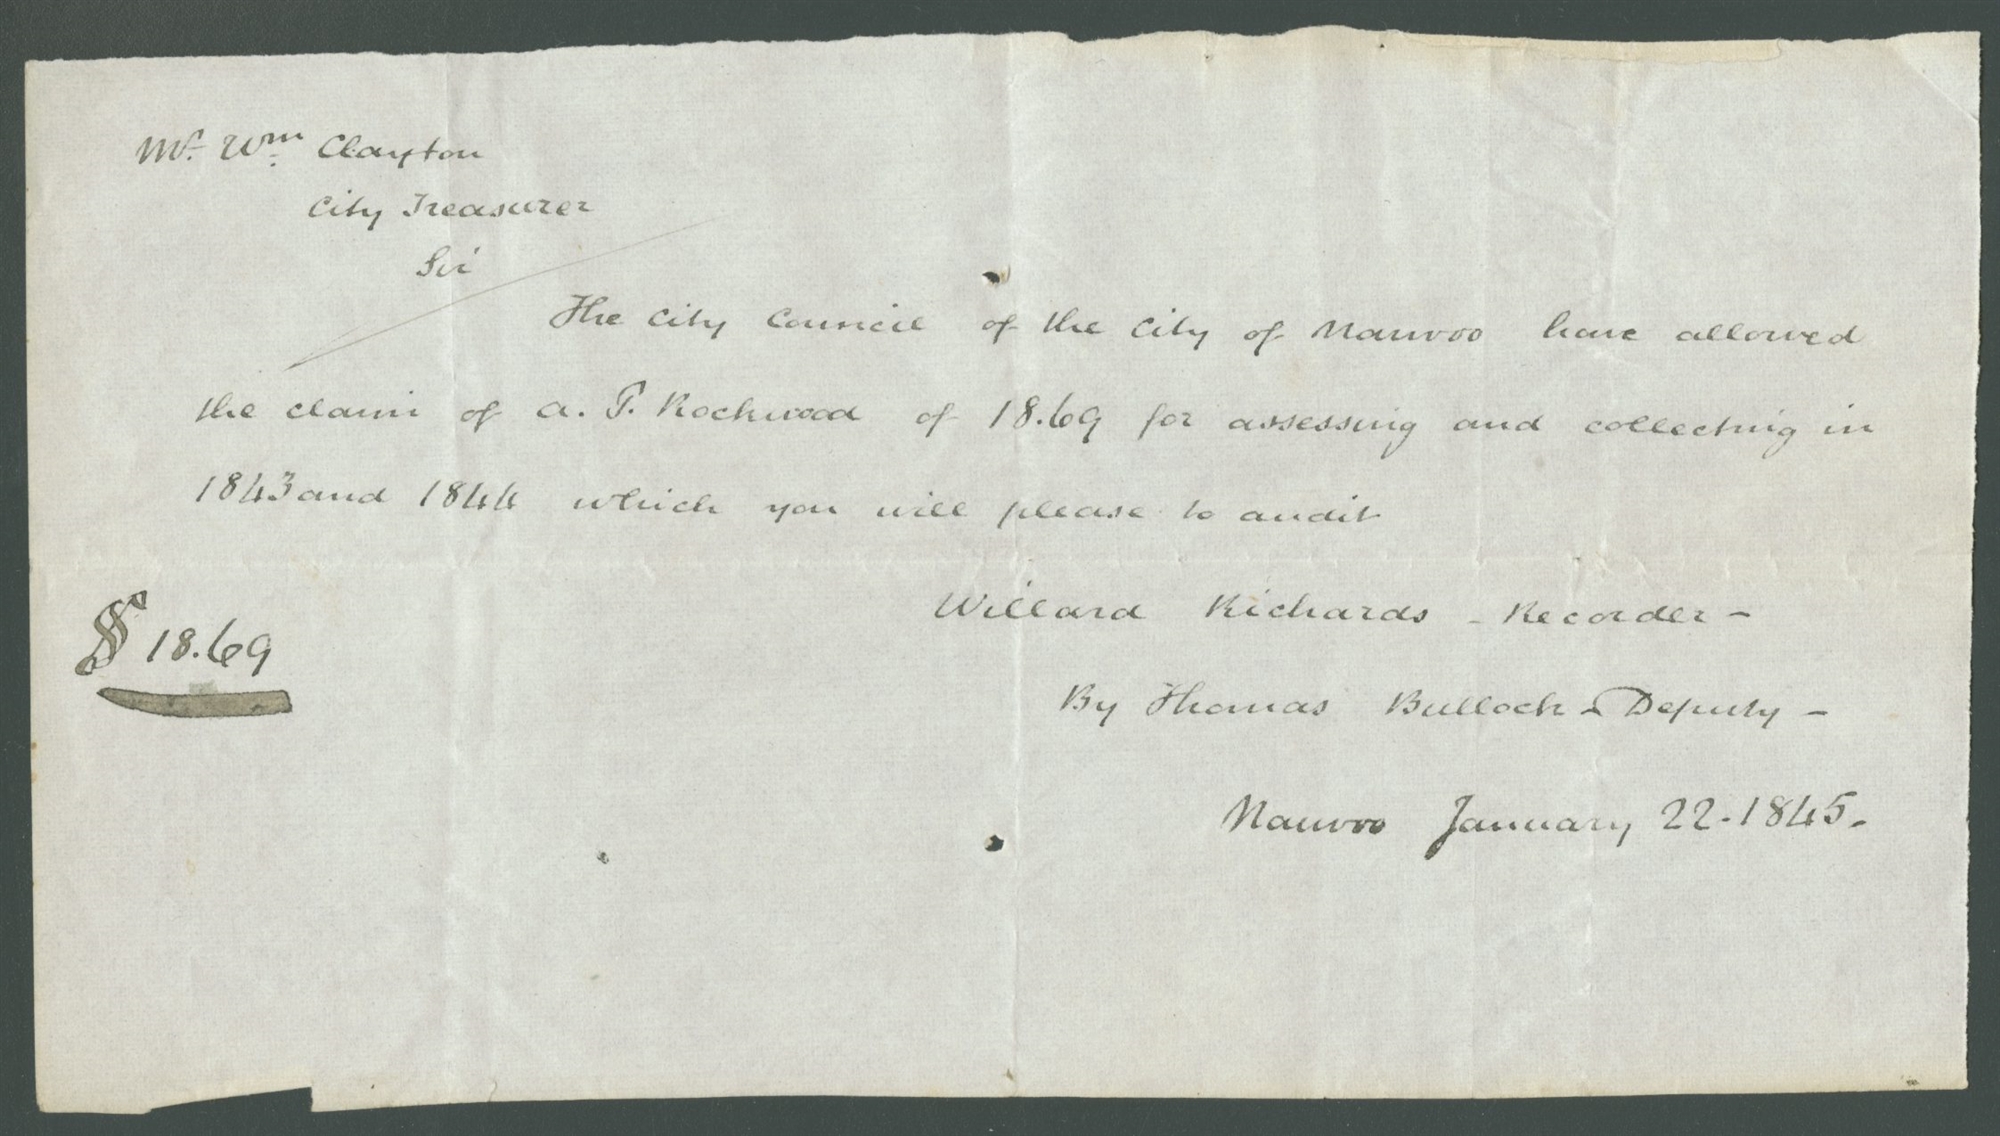 Mr. Wm. Clayton
City Treasurer
Sir
The City Council of the City of Nauvoo have allowed
the claim of A. P. Rockwood of 18.69 for assessing and collecting in
1843 and 1844 which you will please to audit
Willard Richards - Recorder -
$ 18.69
By Thomas Bullock - Deputy -
Nauvoo January 22. 1845.